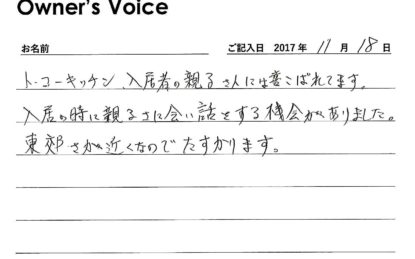 Owner's Voice
お名前 ご記入日 2017年 11月 18日
トーコーキッチン、入居者の親子さんには喜こばれてます。
入居の時に親子さんに会い話をする機会がありました。
東郊さんが近くなのでたすかります。